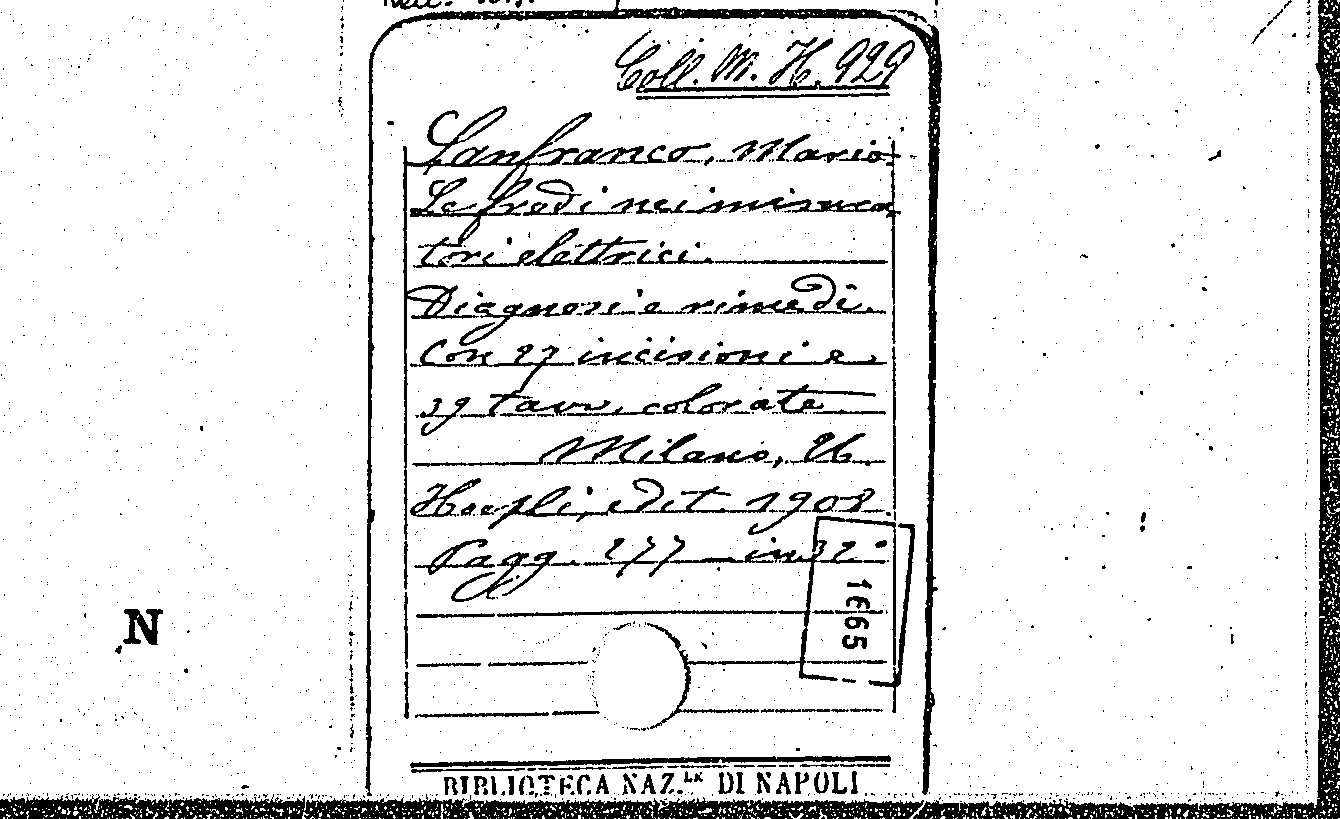 Coll. M. H. 929
Lanfranco, Mario.
Le frodi nei misura-
tori elettrici.
Diagnosi e rimedi.
Con 27 incisioni e
39 tavv. colorate
Milano, U.
Hoepli, edit. 1908
Pagg. 277 in 32°
1665
N
BIBLIOTECA NAZ.LE DI NAPOLI